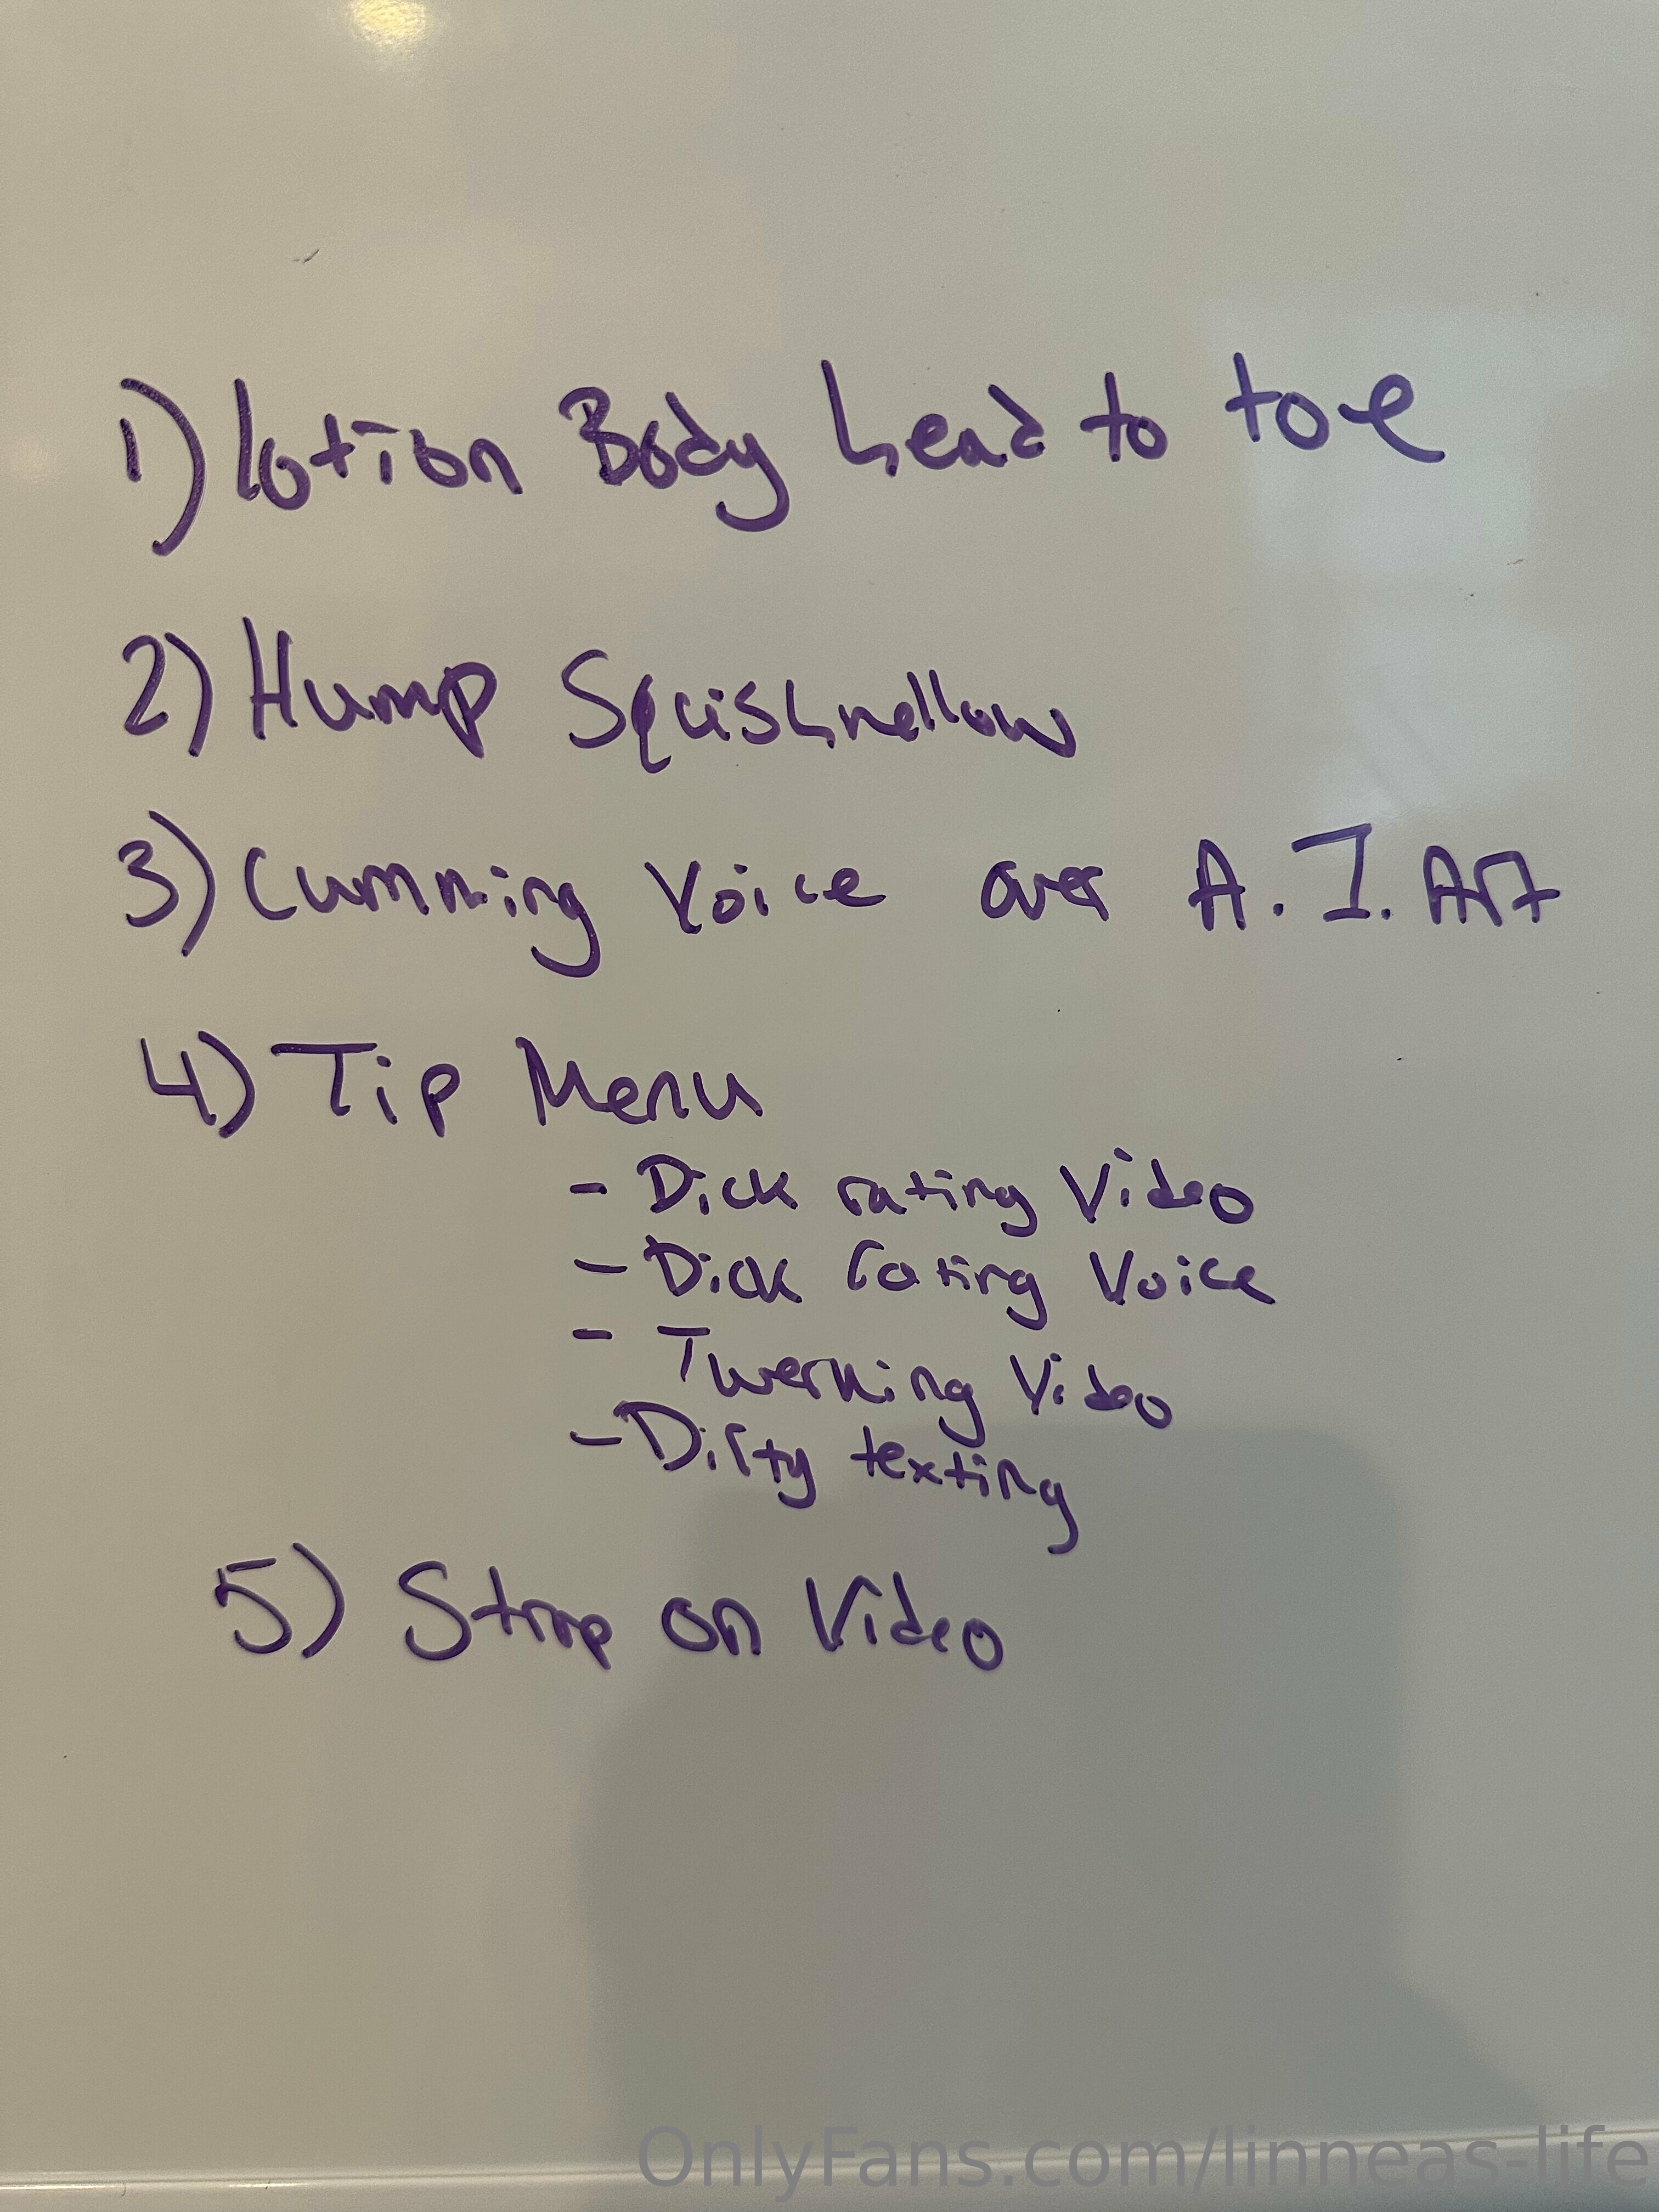 1) Lotion Body head to toe
2) Hump Squishmellow
3) Cumming Voice over A.I. Art
4) Tip Menu
- Dick rating Video
- Dick rating Voice
- Twerking Video
- Dirty texting
5) Strap on Video
OnlyFans.com/linneas-life